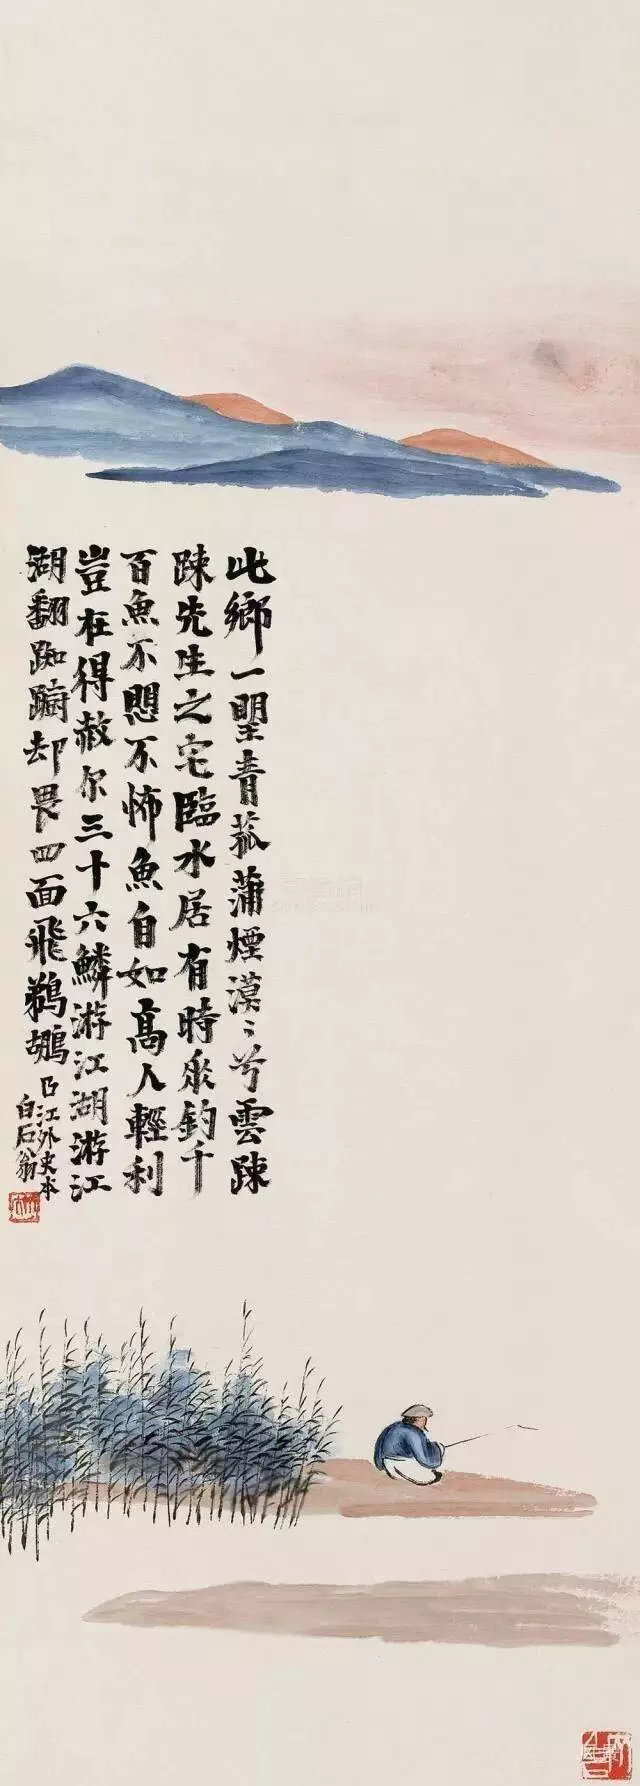 此鄉一望青菰蒲煙漠〻兮雲疎
疎先生之宅臨水居有時來釣千
百魚不愳不怖魚自如高人輕利
豈在得赦尔三十六鱗游江湖游江
湖翻踟躕却畏四面飛鵜鶘
江外史本
白石翁